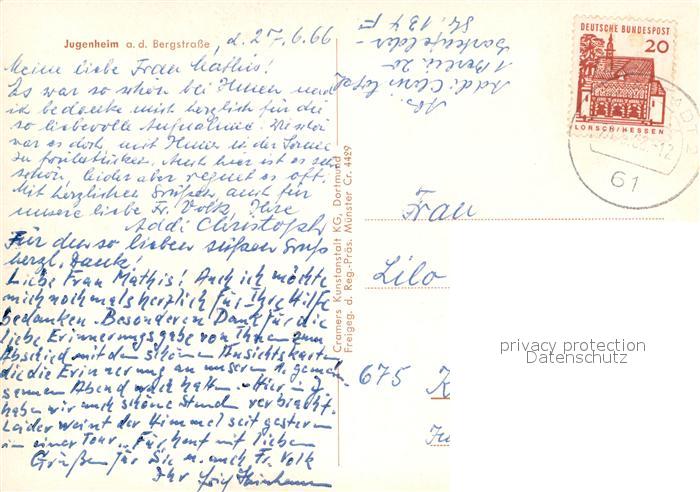 Jugenheim a.d. Bergstraße, d. 27.6.66
Meine liebe Frau Mathis!
Es war so schön bei Ihnen und
ich bedanke mich herzlich für die
so liebevolle Aufnahme. Wie schön
war es doch, mit Ihnen in der Sonne
zu frühstücken. Auch hier ist es sehr
schön, leider aber regnet es oft.
Mit herzlichen Grüßen, auch für
unsere liebe Fr. Volk, Ihre
Addi Christoph
Für den so lieben süßen Gruß
herzl. Dank!
Liebe Frau Mathis! Auch ich möchte
mich nochmals herzlich für Ihre Hilfe
bedanken. Besonderen Dank für die
liebe Erinnerungsgabe von Ihnen zum
Abschied mit den schönen Ansichtskarten
die die Erinnerung an unseren 1. gemein-
samen Abend wach halten. Hier in J.
haben wir auch schöne Stunden verbracht.
Leider weint der Himmel seit gestern
in einer Tour. Für heut mit lieben
Grüßen für Sie u. auch Fr. Volk
Ihr
Cramers Kunstanstalt KG, Dortmund
Freigeg. d. Reg-Präs. Münster Cr. 4429
Abs.
Addi Christoph
1 Berlin 20
Str. 134 F
DEUTSCHE BUNDESPOST
20
LORSCH/HESSEN
61
Frau
Lilo
675 K
privacy protection
Datenschutz